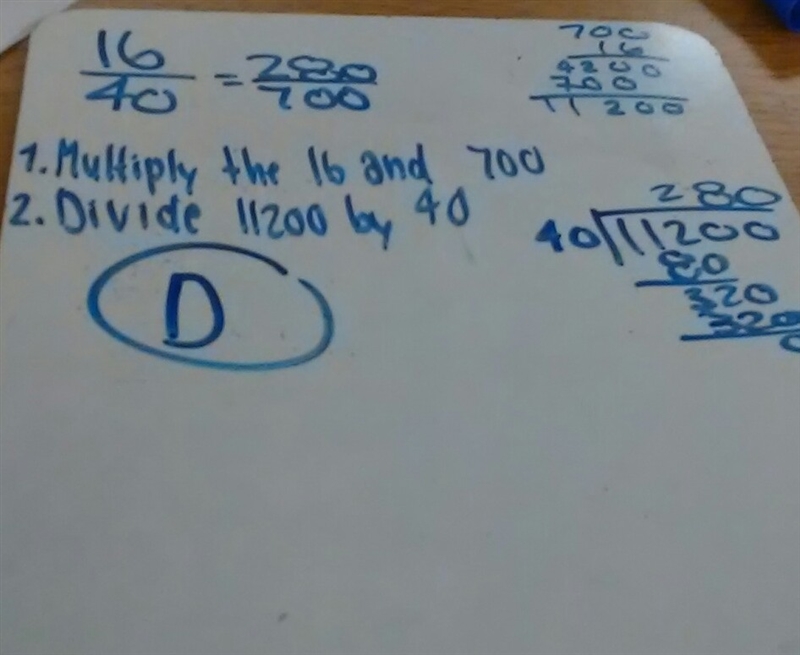 16
40
= 280
700
1. Multiply the 16 and 700
2. Divide 11200 by 40
D
700
16
4200
700
11200
280
40 11200
80
320
320
0